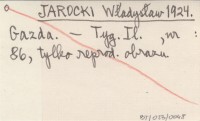 JAROCKI Władysław 1924.
Gazda. — Tyg. Il., nr
86, tylko reprod. obrazu